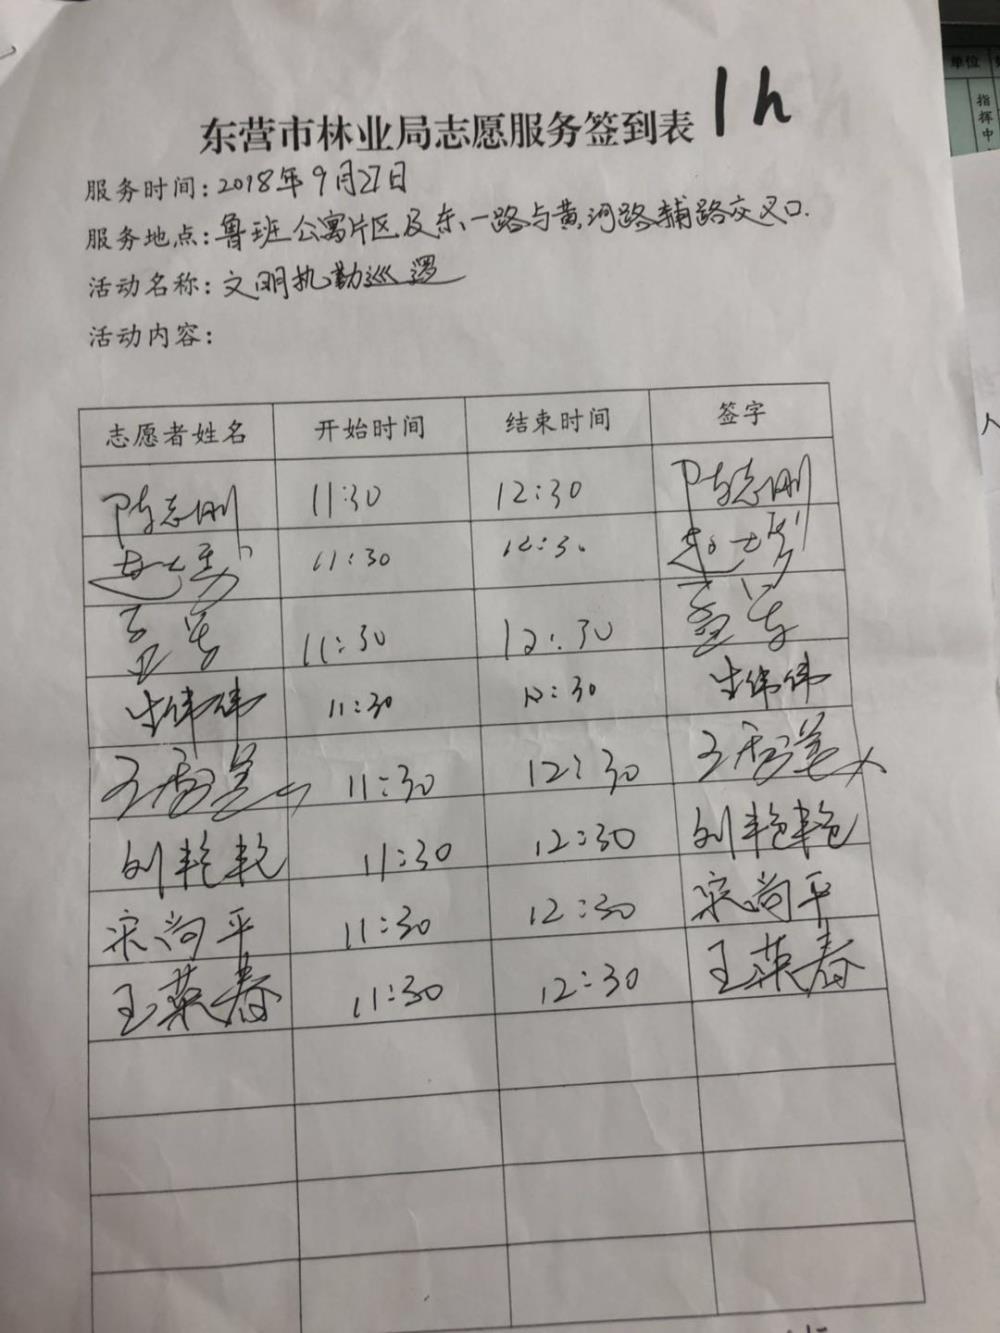 东营市林业局志愿服务签到表 1h
服务时间：2018年9月27日
服务地点：鲁班公寓片区及东一路与黄河路辅路交叉口.
活动名称：文明执勤巡逻
活动内容：
志愿者姓名 开始时间 结束时间 签字
陈志刚 11:30 12:30 陈志刚
11:30 12:30
11:30 12:30
牛伟伟 11:30 12:30 牛伟伟
11:30 12:30
刘艳艳 11:30 12:30 刘艳艳
宋尚平 11:30 12:30 宋尚平
王英春 11:30 12:30 王英春
单位
指挥中